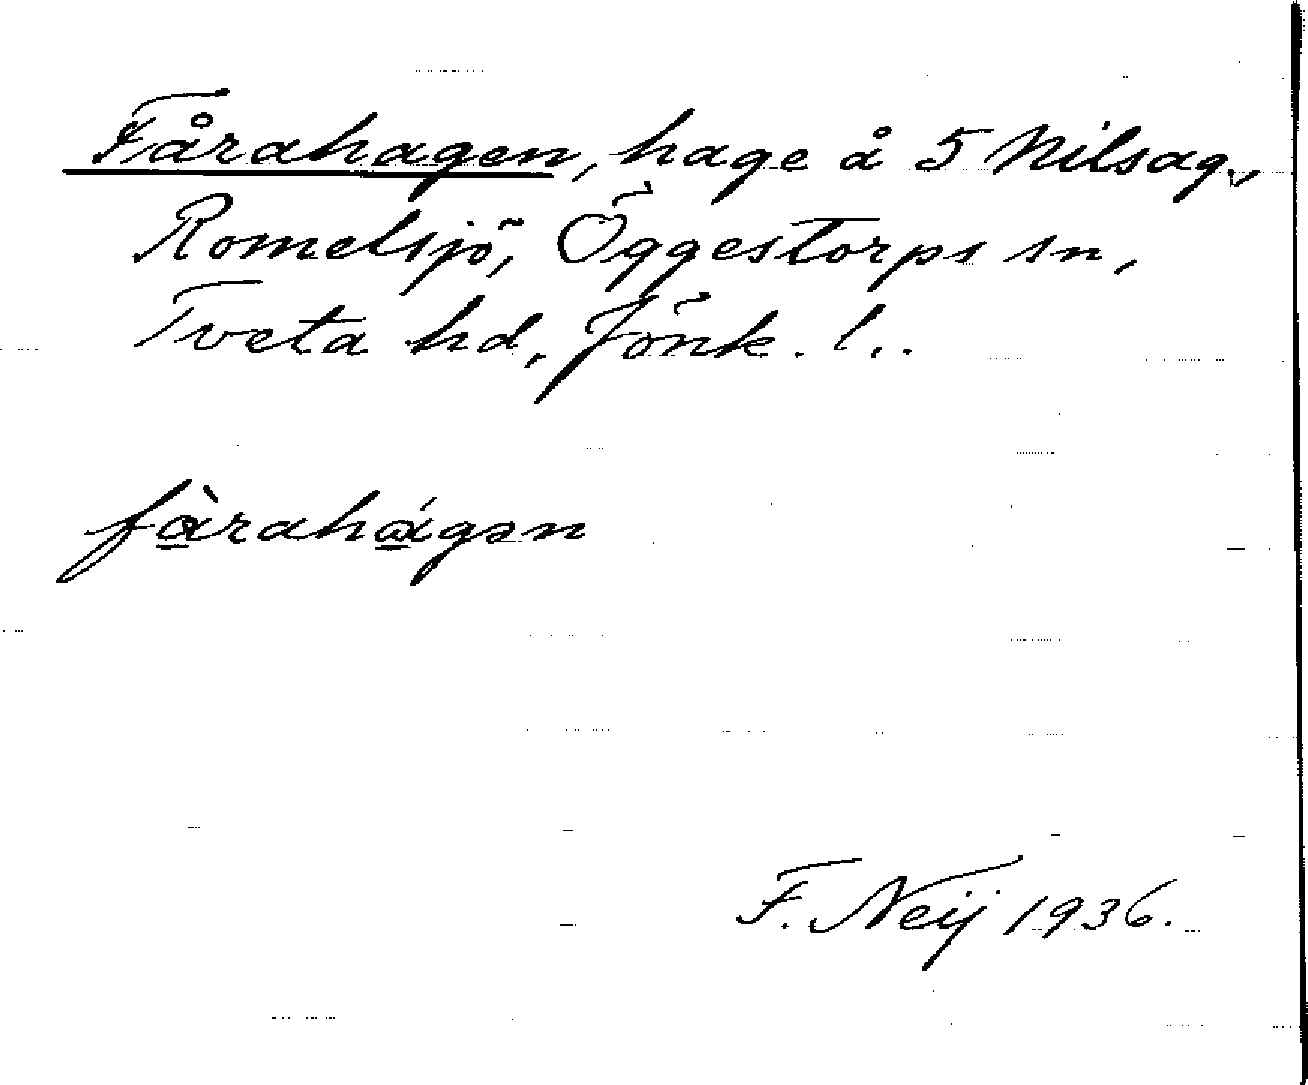 Fårahagen, hage å 5 Nilsag.,
Romelsjö, Öggestorps sn,
Tveta hd, Jönk. l..
fàrahágən
F. Neij 1936.